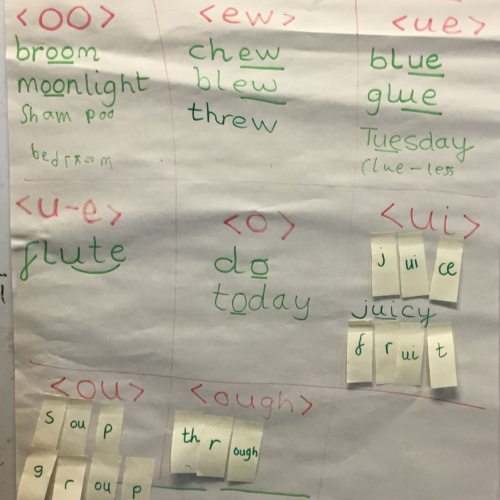 <oo>
broom
moonlight
Sham poo
bedroom
<ew>
chew
blew
threw
<ue>
blue
glue
Tuesday
Clue-less
<u-e>
flute
<o>
do
today
<ui>
j ui ce
juicy
f r ui t
<ou>
s ou p
g r ou p
<ough>
th r ough